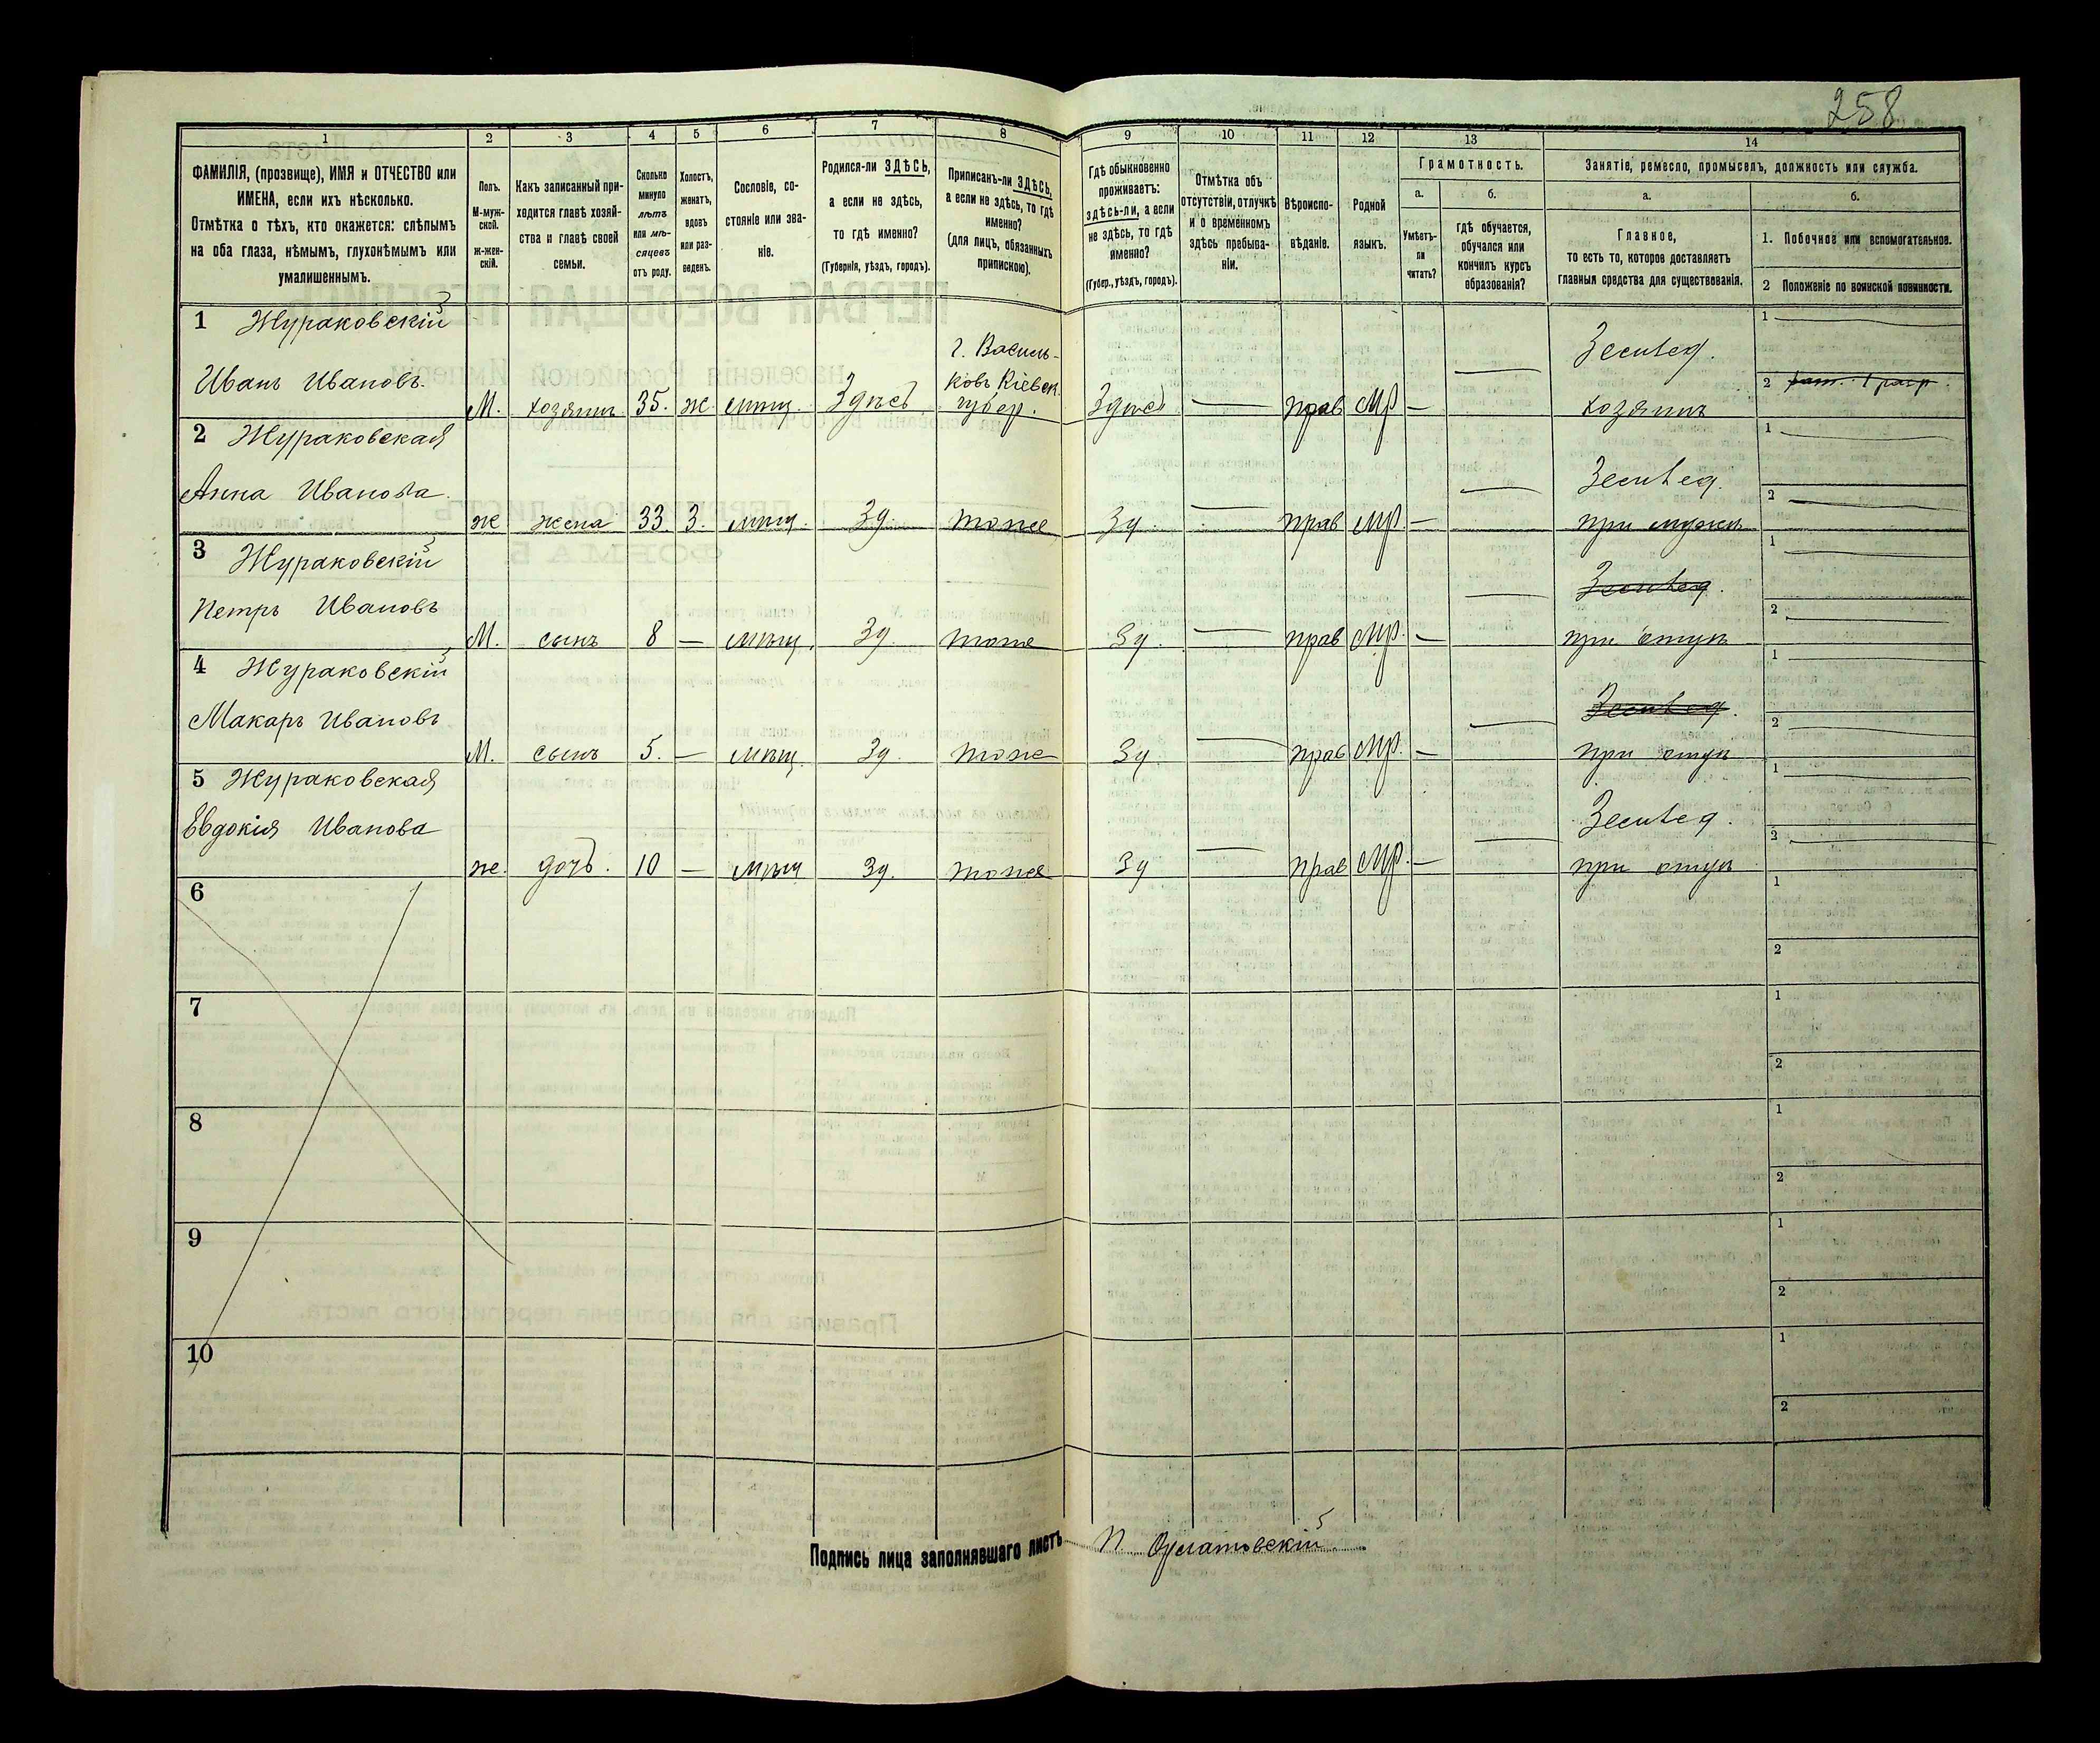 258
1 2 3 4 5 6 7 8 9 10 11 12 13 14
ФАМИЛІЯ, (прозвище), ИМЯ и ОТЧЕСТВО или
ИМЕНА, если ихъ нѣсколько.
Отмѣтка о тѣхъ, кто окажется: слѣпымъ
на оба глаза, нѣмымъ, глухонѣмымъ или
умалишеннымъ.
Полъ.
М-муж-
ской.
ж-жен-
скій.
Какъ записанный при-
ходится главѣ хозяй-
ства и главѣ своей
семьи.
Сколько
минуло
лѣтъ
или мѣ-
сяцевъ
отъ роду.
Холостъ,
женатъ,
вдовъ
или раз-
веденъ.
Сословіе, со-
стояніе или зва-
ніе.
Родился-ли ЗДѢСЬ,
а если не здѣсь,
то гдѣ именно?
(Губернія, уѣздъ, городъ).
Приписанъ-ли ЗДѢСЬ,
а если не здѣсь, то гдѣ
именно?
(для лицъ, обязанныхъ
припискою).
Гдѣ обыкновенно
проживаетъ:
здѣсь-ли, а если
не здѣсь, то гдѣ
именно?
(Губер., уѣздъ, городъ).
Отмѣтка объ
отсутствіи, отлучкѣ
и о временномъ
здѣсь пребыва-
ніи.
Вѣроиспо-
вѣданіе.
Родной
языкъ.
Грамотность.
а.
Умѣетъ-
ли
читать?
б.
гдѣ обучается,
обучался или
кончилъ курсъ
образованія?
Занятіе, ремесло, промыселъ, должность или служба.
а.
Главное,
то есть то, которое доставляетъ
главныя средства для существованія.
б.
1. Побочное или вспомогательное.
2 Положеніе по воинской повинности.
1 Жураковскій
Иванъ Ивановъ.
М. хозяинъ 35. ж мѣщ. Здѣсь
г. Василь-
ковъ Кіевск.
губер.
Здѣсь — прав мр —
Землед.
хозяинъ
1 —
2
2 Жураковская
Анна Иванова
ж жена 33 З. мѣщ. Зд. тоже Зд. — прав мр. — —
Землед.
при мужѣ
1 —
2 —
3 Жураковскій
Петръ Ивановъ
М. сынъ 8 — мѣщ. Зд. тоже Зд. — прав мр. — —
Землед.
при отцѣ
1 —
2 —
4 Жураковскій
Макаръ Ивановъ
М. сынъ 5. — мѣщ. Зд. тоже Зд. — прав мр. — —
Землед.
при отцѣ
1 —
2 —
5 Жураковская
Евдокія Иванова
ж. дочь. 10 — мѣщ Зд. тоже Зд — прав мр. — —
Землед.
при отцѣ
1 —
2 —
6
1
2
7
1
2
8
1
2
9
1
2
10
1
2
Подпись лица заполнявшаго листъ П.